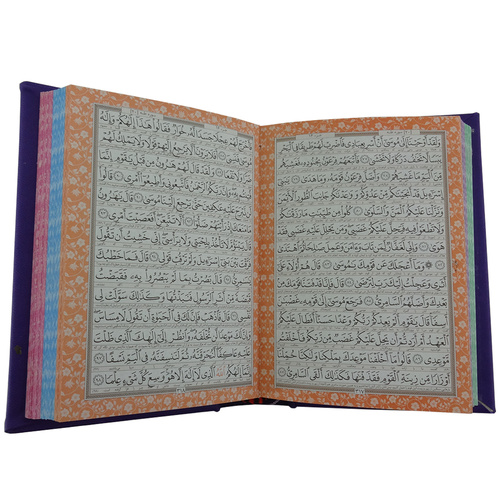 وَلَقَدْ أَوْحَيْنَا إِلَىٰ مُوسَىٰ أَنْ أَسْرِ بِعِبَادِي فَاضْرِبْ لَهُمْ طَرِيقًا فِي الْبَحْرِ
يَبَسًا لَّا تَخَافُ دَرَكًا وَلَا تَخْشَىٰ ٧٧ فَأَتْبَعَهُمْ فِرْعَوْنُ بِجُنُودِهِ فَغَشِيَهُم
مِّنَ الْيَمِّ مَا غَشِيَهُمْ ٧٨ وَأَضَلَّ فِرْعَوْنُ قَوْمَهُ وَمَا هَدَىٰ ٧٩ يَٰبَنِي
إِسْرَٰءِيلَ قَدْ أَنجَيْنَٰكُم مِّنْ عَدُوِّكُمْ وَوَٰعَدْنَٰكُمْ جَانِبَ الطُّورِ الْأَيْمَنَ
وَنَزَّلْنَا عَلَيْكُمُ الْمَنَّ وَالسَّلْوَىٰ ٨٠ كُلُوا مِن طَيِّبَٰتِ مَا رَزَقْنَٰكُمْ
وَلَا تَطْغَوْا فِيهِ فَيَحِلَّ عَلَيْكُمْ غَضَبِي وَمَن يَحْلِلْ عَلَيْهِ غَضَبِي فَقَدْ
هَوَىٰ ٨١ وَإِنِّي لَغَفَّارٌ لِّمَن تَابَ وَءَامَنَ وَعَمِلَ صَٰلِحًا ثُمَّ اهْتَدَىٰ
٨٢ وَمَا أَعْجَلَكَ عَن قَوْمِكَ يَٰمُوسَىٰ ٨٣ قَالَ هُمْ أُولَاءِ عَلَىٰ
أَثَرِي وَعَجِلْتُ إِلَيْكَ رَبِّ لِتَرْضَىٰ ٨٤ قَالَ فَإِنَّا قَدْ فَتَنَّا قَوْمَكَ مِنۢ
بَعْدِكَ وَأَضَلَّهُمُ السَّامِرِيُّ ٨٥ فَرَجَعَ مُوسَىٰ إِلَىٰ قَوْمِهِ غَضْبَٰنَ
أَسِفًا قَالَ يَٰقَوْمِ أَلَمْ يَعِدْكُمْ رَبُّكُمْ وَعْدًا حَسَنًا أَفَطَالَ عَلَيْكُمُ
الْعَهْدُ أَمْ أَرَدتُّمْ أَن يَحِلَّ عَلَيْكُمْ غَضَبٌ مِّن رَّبِّكُمْ فَأَخْلَفْتُم
مَّوْعِدِي ٨٦ قَالُوا مَا أَخْلَفْنَا مَوْعِدَكَ بِمَلْكِنَا وَلَٰكِنَّا حُمِّلْنَا
أَوْزَارًا مِّن زِينَةِ الْقَوْمِ فَقَذَفْنَٰهَا فَكَذَٰلِكَ أَلْقَى السَّامِرِيُّ ٨٧
فَأَخْرَجَ لَهُمْ عِجْلًا جَسَدًا لَّهُ خُوَارٌ فَقَالُوا هَٰذَا إِلَٰهُكُمْ وَإِلَٰهُ
مُوسَىٰ فَنَسِيَ ٨٨ أَفَلَا يَرَوْنَ أَلَّا يَرْجِعُ إِلَيْهِمْ قَوْلًا وَلَا يَمْلِكُ لَهُمْ
ضَرًّا وَلَا نَفْعًا ٨٩ وَلَقَدْ قَالَ لَهُمْ هَٰرُونُ مِن قَبْلُ يَٰقَوْمِ إِنَّمَا
فُتِنتُم بِهِ وَإِنَّ رَبَّكُمُ الرَّحْمَٰنُ فَاتَّبِعُونِي وَأَطِيعُوا أَمْرِي ٩٠ قَالُوا
لَن نَّبْرَحَ عَلَيْهِ عَٰكِفِينَ حَتَّىٰ يَرْجِعَ إِلَيْنَا مُوسَىٰ ٩١ قَالَ يَٰهَٰرُونُ
مَا مَنَعَكَ إِذْ رَأَيْتَهُمْ ضَلُّوا ٩٢ أَلَّا تَتَّبِعَنِ أَفَعَصَيْتَ أَمْرِي ٩٣
قَالَ يَبْنَؤُمَّ لَا تَأْخُذْ بِلِحْيَتِي وَلَا بِرَأْسِي إِنِّي خَشِيتُ أَن تَقُولَ
فَرَّقْتَ بَيْنَ بَنِي إِسْرَٰءِيلَ وَلَمْ تَرْقُبْ قَوْلِي ٩٤ قَالَ فَمَا خَطْبُكَ
يَٰسَٰمِرِيُّ ٩٥ قَالَ بَصُرْتُ بِمَا لَمْ يَبْصُرُوا بِهِ فَقَبَضْتُ
قَبْضَةً مِّنْ أَثَرِ الرَّسُولِ فَنَبَذْتُهَا وَكَذَٰلِكَ سَوَّلَتْ لِي
نَفْسِي ٩٦ قَالَ فَاذْهَبْ فَإِنَّ لَكَ فِي الْحَيَوٰةِ أَن تَقُولَ لَا مِسَاسَ
وَإِنَّ لَكَ مَوْعِدًا لَّن تُخْلَفَهُ وَانظُرْ إِلَىٰ إِلَٰهِكَ الَّذِي ظَلْتَ
عَلَيْهِ عَاكِفًا لَّنُحَرِّقَنَّهُ ثُمَّ لَنَنسِفَنَّهُ فِي الْيَمِّ نَسْفًا ٩٧
إِنَّمَا إِلَٰهُكُمُ اللَّهُ الَّذِي لَا إِلَٰهَ إِلَّا هُوَ وَسِعَ كُلَّ شَيْءٍ عِلْمًا ٩٨